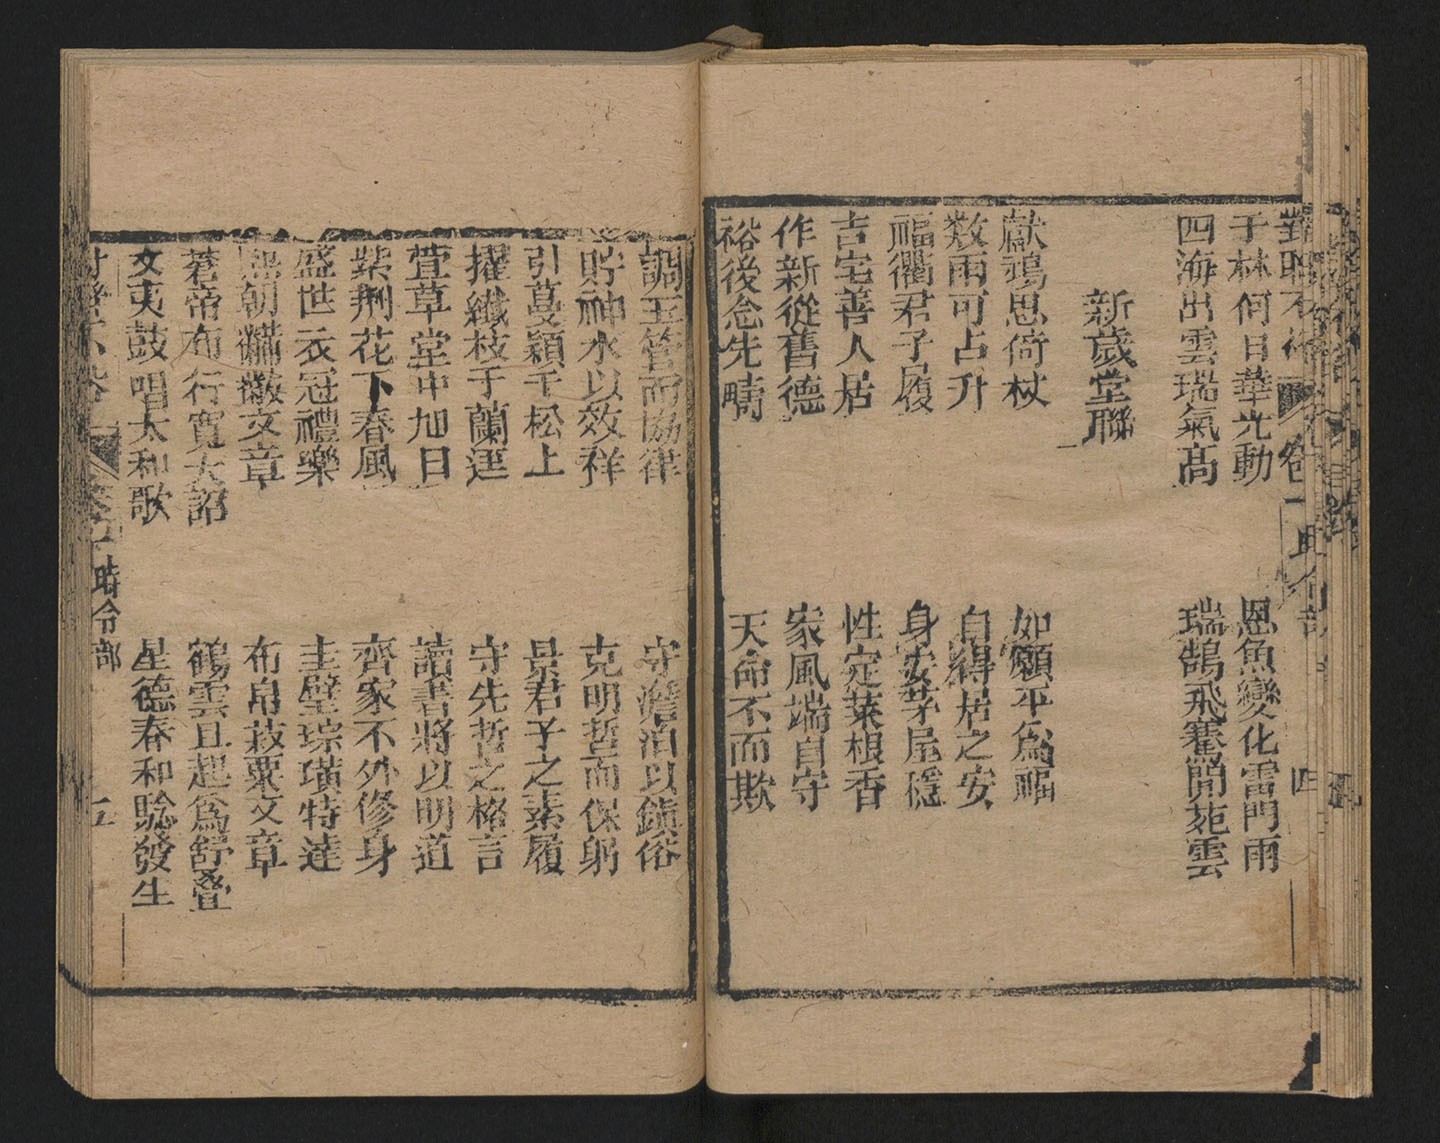 對聯不俗 卷一 時令部 四
子林何日華光動 恩魚變化雷門雨
四海出雲瑞氣高 瑞鵲飛騫閬苑雲
新歲堂聯
獻鳩思倚杖 如願平為福
數雨可占升 自得居之安
福衢君子履 身安茅屋穩
吉宅善人居 性定菜根香
作新從舊德 家風端自守
裕後念先疇 天命不而欺
調玉管而協律 守澹泊以鎮俗
貯神水以效祥 克明哲而保躬
引蔓穎于松上 景君子之素履
擢纖枝于蘭逕 守先哲之格言
萱草堂中旭日 讀書將以明道
紫荆花下春風 齊家不外修身
盛世衣冠禮樂 圭璧琮璜特達
熙朝黼黻文章 布帛菽粟文章
蒼帝布行寬大詔 鶴雲且起為舒叠
女夷鼓唱太和歌 星德春和驗發生
對聯不俗 卷一 時令部 五